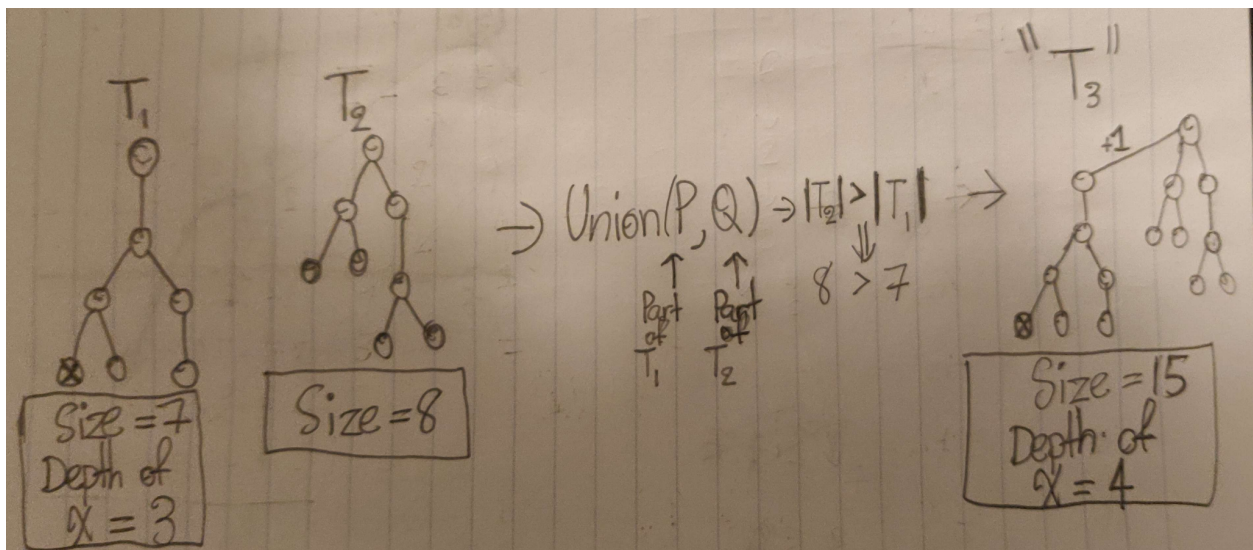 T1
Size = 7
Depth of
x = 3
T2
Size = 8
→ Union(P, Q) → |T2| > |T1| →
↑ ↑ ⇓
Part of T1
Part of T2
8 > 7
"T3"
+1
Size = 15
Depth of
x = 4